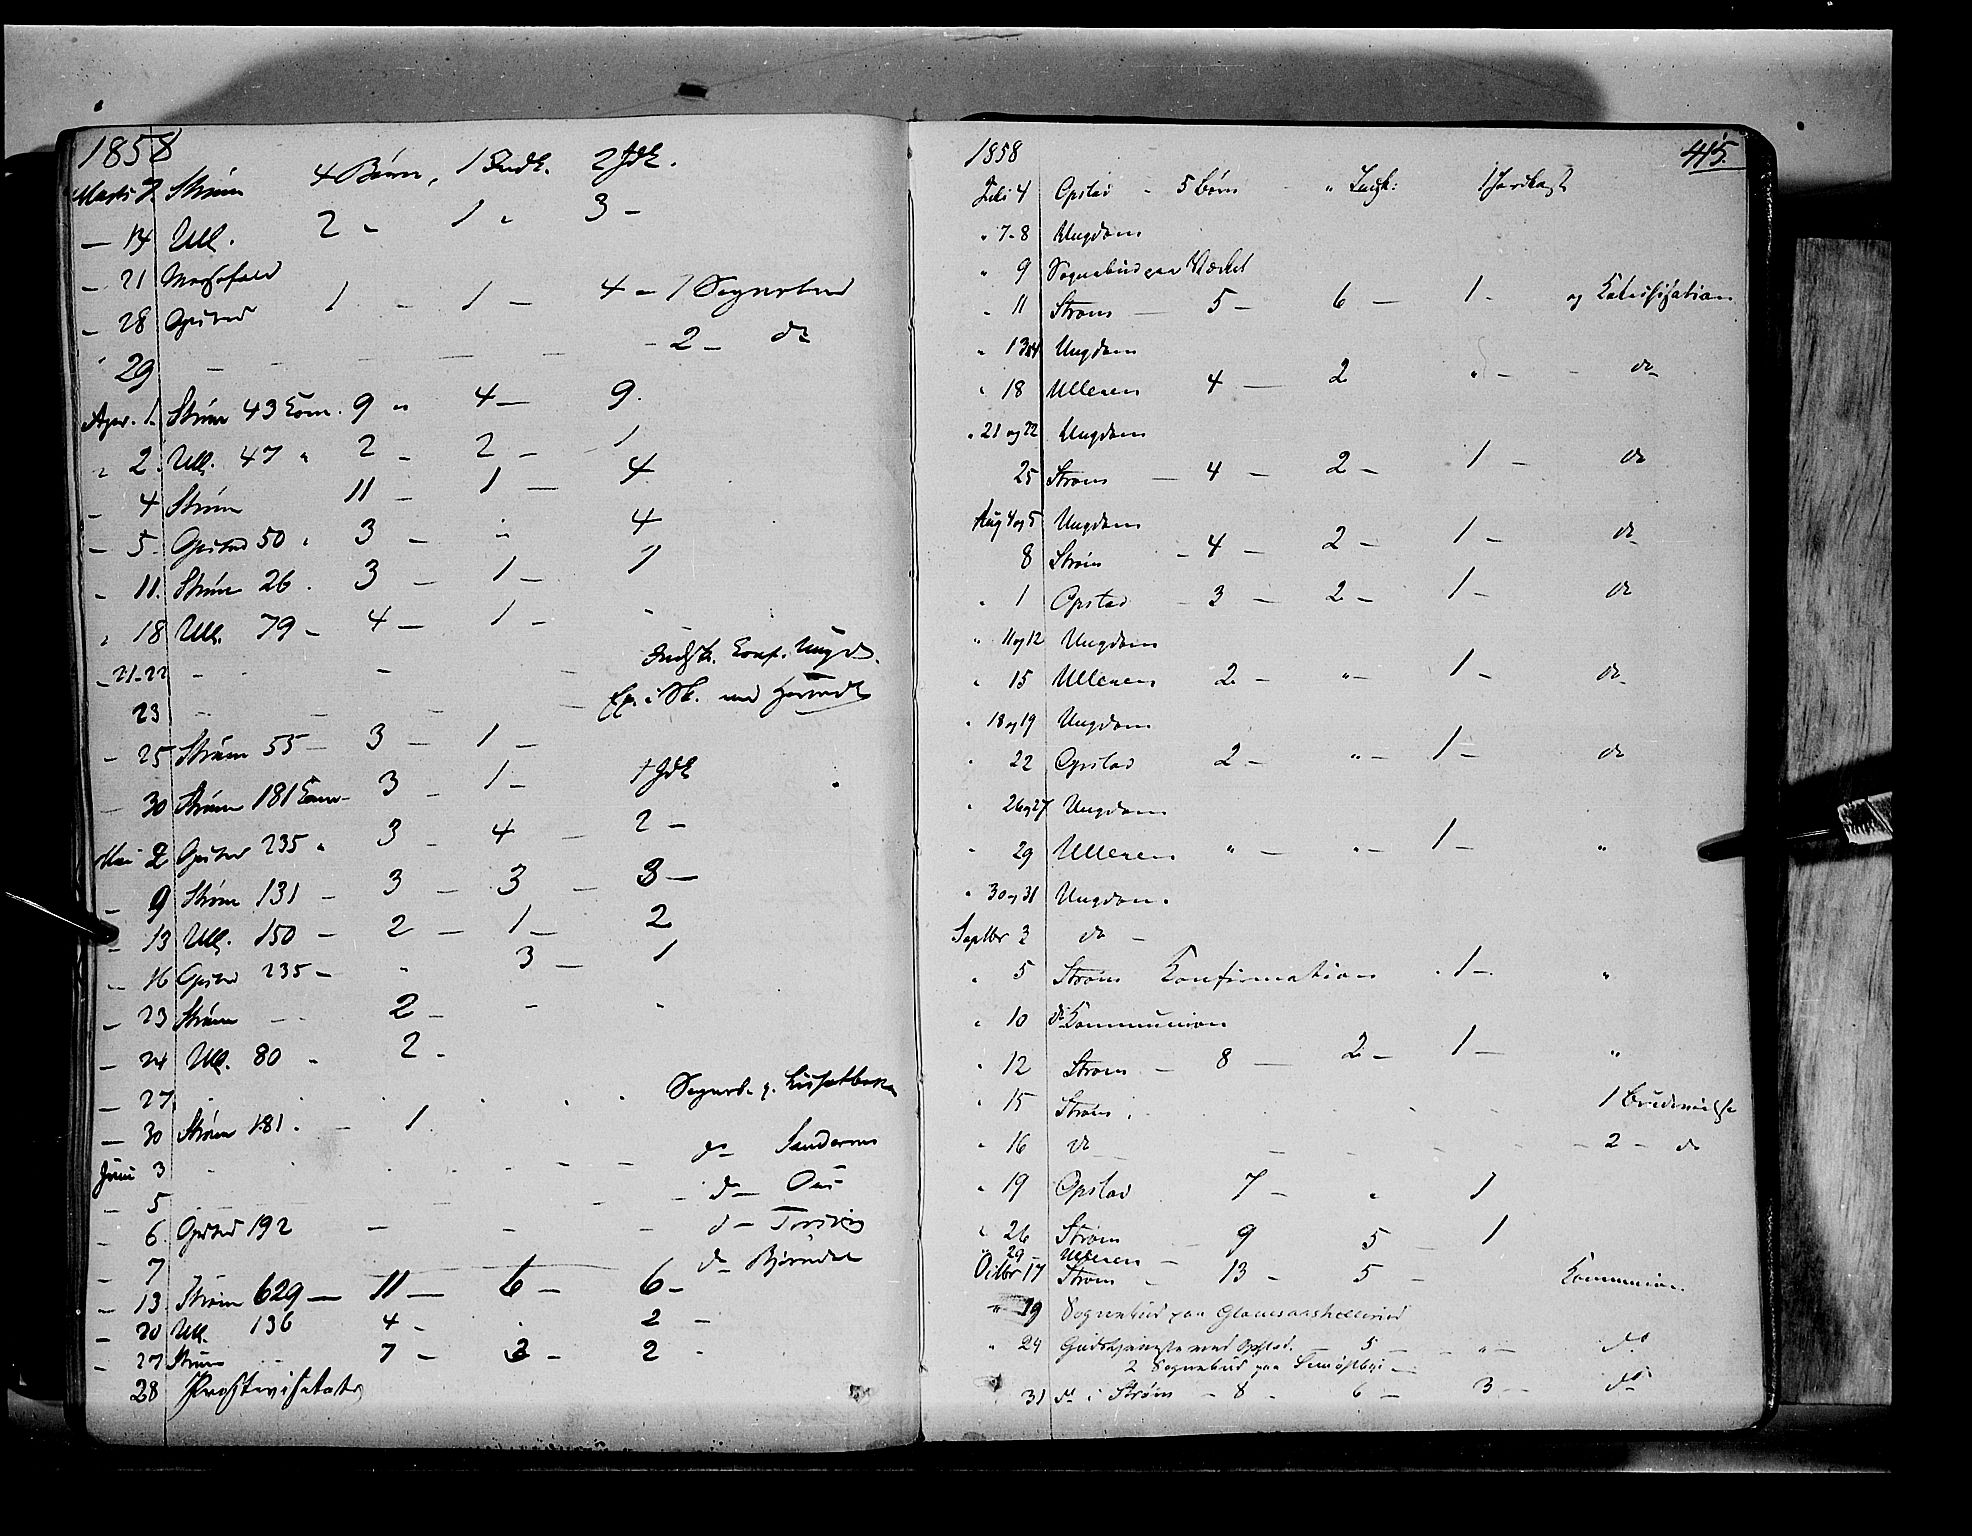 1858
Marts 7 Strøm 4 Børn, 1 Indk. 2 Jdk.
— 14 Ull. 2 — 1 " 3 —
— 21 Messefald
— 28 Opstad 1 — 1 — 4 — 1 Sognebud
" 29 — — — — — 2 — do
Apr. 1. Strøm 43 Com. 9 " 4 — 9.
" 2. Ull. 47 " 2 — 2 — 1
— 4 Strøm 11 — 1 — 4
— 5 Opstad 50 " 3 — " 4
— 11. Strøm 26 . 3 — 1 — 1
" 18 Ull. 79 — 4 — 1 — -
— 21-22 — — Konf. Ungd.
23 — — — — med
— 25 Strøm 55 — 3 — 1 —
— 30 Strøm 181 Com — 3 — 1 — 1 Jdk
Mai 2 Opstad 235 " 3 — 4 — 2 —
— 9 Strøm 131 — 3 — 3 — 3 —
— 13 Ull. 150 — 2 — 1 — 2
— 16 Opstad 235 — " 3 — 1
— 23 Strøm — 2 — - "
— 24 Ull. 80 " 2 -
— 27. Sogneb.
— 30 Strøm 181 . — 1
Juni 3 do Sandernes
— 5 do
— 6 Opstad 192 — — — do
— 7 do Bjørndal
— 13 Strøm 629 — 11 — 6 — 6 —
— 20 Ull. 136 4 - . 2 —
— 27 Strøm 7 — 3 — 2 -
28 Prostevisitats
1858 415.
Juli 4 Opstad - 5 børn " Indk: 1 Jordkast
" 7-8 Ungdom
" 9 Sognebud paa Værket
" 11 Strøm — 5 — 6 — 1 - og Katechisation
" 13 14 Ungdom
" 18 Ulleren 4 — 2 " — do
" 21 og 22 Ungdom
25 Strøm — 4 — 2 — 1 — do
Aug 4 og 5 Ungdom
8 Strøm — 4 — 2 — 1 — do
" 1 Opstad — 3 — 2 — 1 — do
" 11 og 12 Ungdom
" 15 Ulleren 2 — " — 1 — do
" 18 og 19 Ungdom
" 22 Opstad 2 — " — 1 — do
" 26 og 27 Ungdom
" 29 Ulleren " — " — 1 — "
" 30 og 31 Ungdom.
Septbr 3 do —
" 5 Strøm Konfirmation " 1 — "
" 10 do Kommunion
" 12 Strøm — 8 — 2 — 1 — "
" 15 Strøm . 1 Brudevielse
" 16 do — — — — — 2 — do
" 19 Opstad 7 — " 1
" 26 Strøm — 9 5 — 1
" 29 — Ulleren —
Octbr 17 Strøm — 13 — 5 — Kommunion.
" 19 Sognebud paa
" 24 Gudstjeneste ved Opstad. — 5 — " — do
2 Sognebud paa
" 31 do i Strøm — 8 — 6 — 3 — do